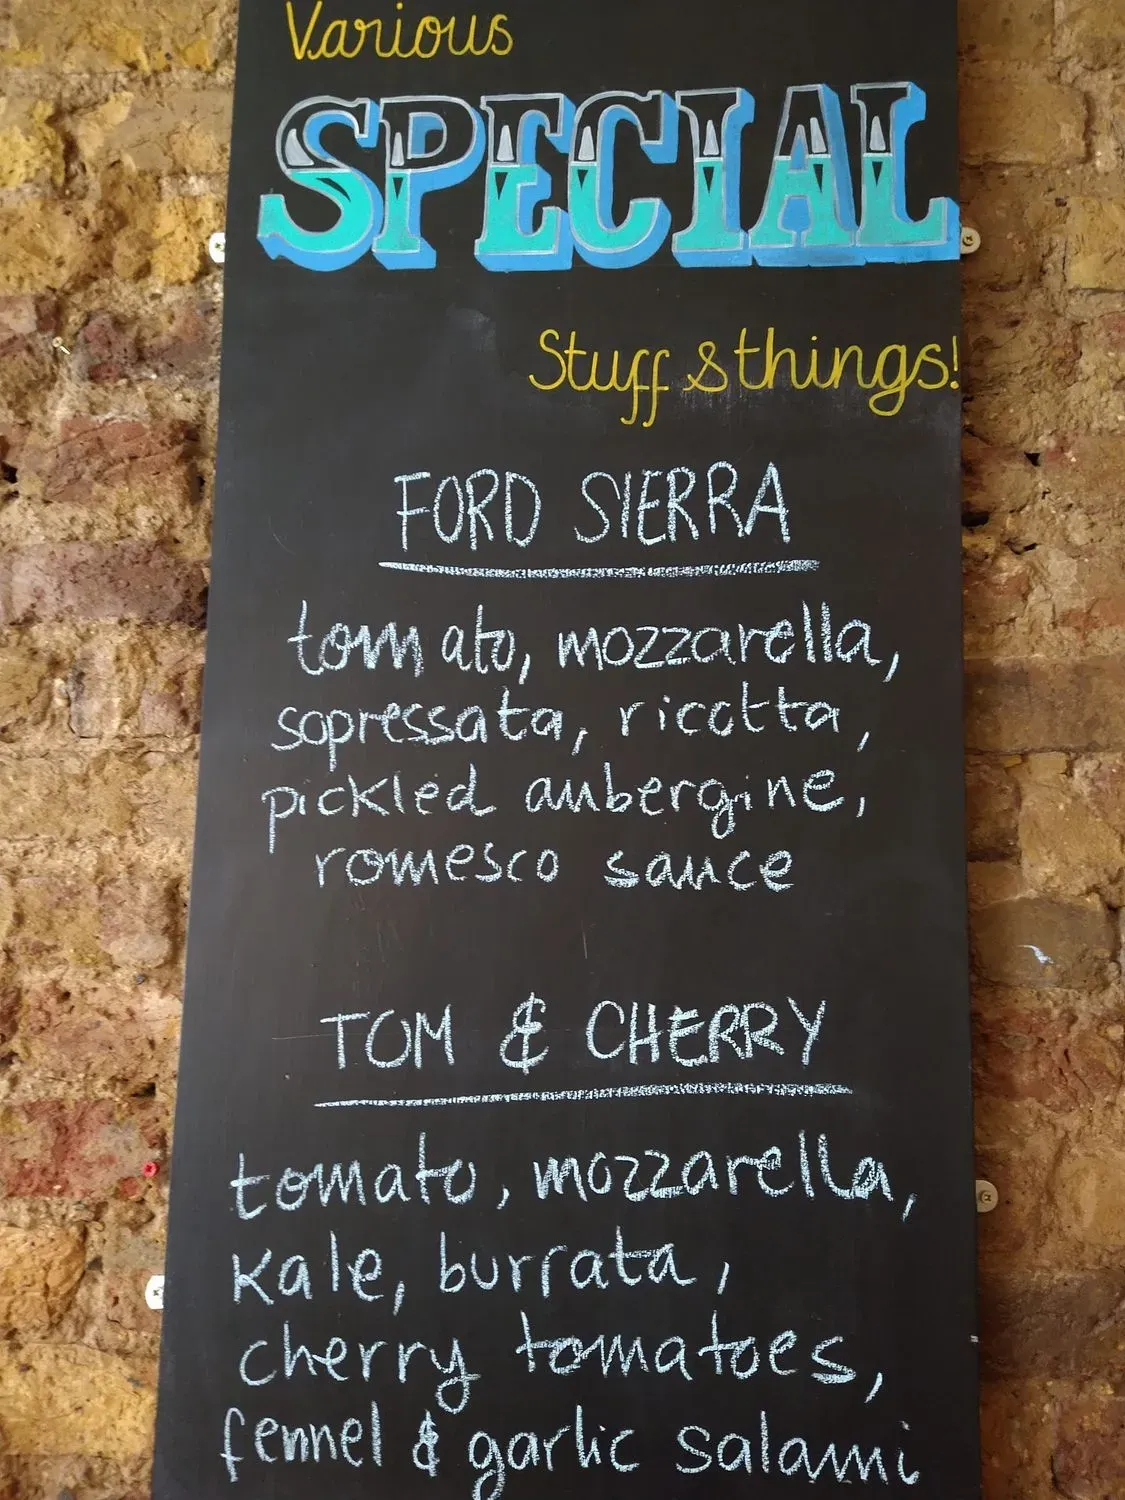 Various
SPECIAL
Stuff & things!
FORD SIERRA
tomato, mozzarella,
sopressata, ricotta,
pickled aubergine,
romesco sauce
TOM & CHERRY
tomato, mozzarella,
Kale, burrata,
cherry tomatoes,
fennel & garlic salami